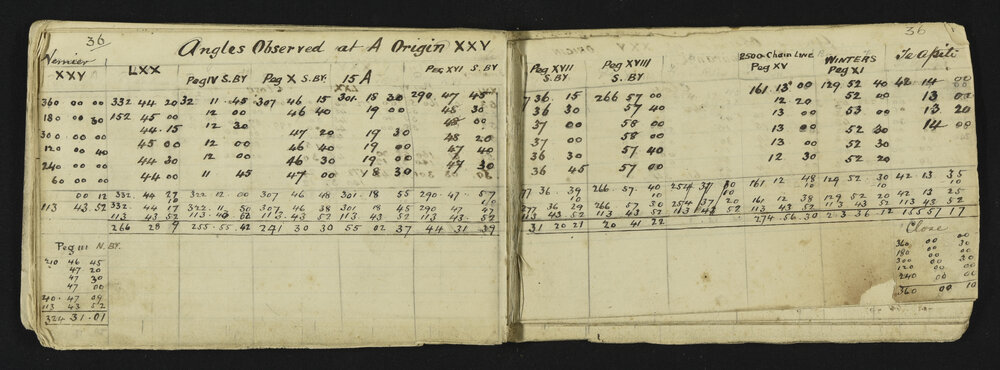 36
36
Angles Observed at A Origin XXV
Vernier XXV LXX Peg IV S.BY Peg X S.BY. 15 A Peg XVI S.BY Peg XVII S.BY Peg XVIII S.BY. 2500 Chain Line Peg XV WINTERS Peg XI Te Apiti
360 00 00 332 44 20 32 11 45 307 46 15 301 18 30 290 47 45 7 36 15 266 57 00 161 13 00 129 52 40 42 14 00
180 00 30 152 45 00 12 00 46 40 19 00 48 30 36 30 57 40 12 20 52 00 13 00
300 00 00 44 15 12 30 47 20 19 30 48 00 37 00 58 00 13 00 53 00 13 20
120 00 40 45 00 12 00 46 40 19 00 48 20 37 00 58 00 13 00 52 30 14 00
240 00 00 44 30 12 00 46 30 19 00 47 40 36 30 57 40 12 30 52 20
60 00 00 44 00 11 45 47 00 18 30 47 30 36 45 57 00
00 12 332 44 27 322 12 00 307 46 48 301 18 55 290 47 57 77 36 39 266 57 40 254 37 30 161 12 48 129 52 30 42 13 35
10 10 10 10 10 10
113 43 52 332 44 17 322 11 50 307 46 38 301 18 45 290 47 47 77 36 29 266 57 30 254 37 20 161 12 38 129 52 20 42 13 25
113 43 52 113 43 52 113 43 52 113 43 52 113 43 52 113 43 52 113 43 52 113 43 52 113 43 52 113 43 52 113 43 52
266 28 9 255 55 42 241 30 30 55 02 37 44 31 39 31 20 21 20 41 22 274 56 30 243 36 12 155 57 17
Peg III N.BY.
210 46 45
47 20
47 30
47 00
210 47 09
113 43 52
324 31 01
Close
360 00 00
180 00 30
300 00 30
120 00 00
240 00 00
360 00 10